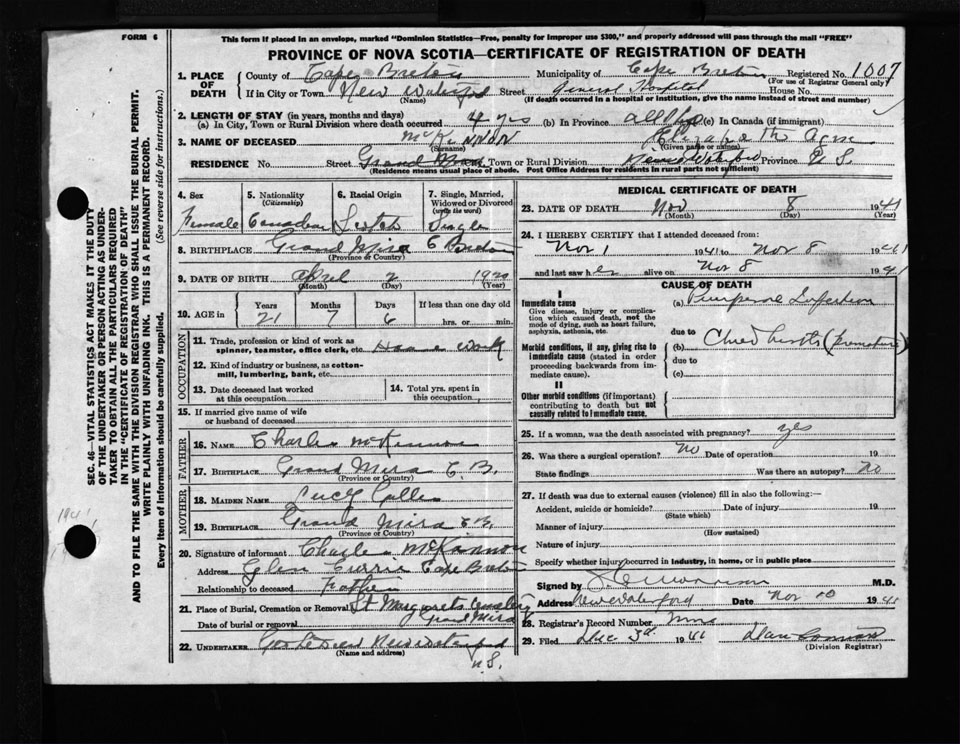 FORM 6
This form if placed in an envelope, marked "Dominion Statistics—Free, penalty for improper use $300," and properly addressed will pass through the mail "FREE"
PROVINCE OF NOVA SCOTIA—CERTIFICATE OF REGISTRATION OF DEATH
1. PLACE OF DEATH County of Cape Breton Municipality of Cape Breton Registered No. 1007
(For use of Registrar General only)
If in City or Town New Waterford Street General Hospital House No.
(Name) (If death occurred in a hospital or institution, give the name instead of street and number)
2. LENGTH OF STAY (in years, months and days)
(a) In City, Town or Rural Division where death occurred 4 yrs (b) In Province all life (c) In Canada (if immigrant)
3. NAME OF DECEASED McKinnon Elizabeth Ann
(Surname) (Given name or names)
RESIDENCE No. Street Grand Mira Town or Rural Division New Waterford Province N.S.
(Residence means usual place of abode. Post Office Address for residents in rural parts not sufficient)
4. Sex Female
5. Nationality (Citizenship) Canadian
6. Racial Origin Scotch
7. Single, Married, Widowed or Divorced (write the word) Single
8. BIRTHPLACE Grand Mira C Breton
(Province or Country)
9. DATE OF BIRTH April 2 1920
(Month) (Day) (Year)
10. AGE in Years 21 Months 7 Days 6 If less than one day old hrs. or min.
OCCUPATION
11. Trade, profession or kind of work as spinner, teamster, office clerk, etc. House Work
12. Kind of industry or business, as cotton-mill, lumbering, bank, etc.
13. Date deceased last worked at this occupation
14. Total yrs. spent in this occupation
15. If married give name of wife or husband of deceased
FATHER
16. NAME Charles McKinnon
17. BIRTHPLACE Grand Mira C.B.
(Province or Country)
MOTHER
18. MAIDEN NAME Lucy
19. BIRTHPLACE Grand Mira C.B.
(Province or Country)
20. Signature of informant Charles McKinnon
Address Glen Currie Cape Breton
Relationship to deceased Father
21. Place of Burial, Cremation or Removal St Margarets Cemetery Grand Mira
Date of burial or removal
22. UNDERTAKER New Waterford
(Name and address)
N.S.
MEDICAL CERTIFICATE OF DEATH
23. DATE OF DEATH Nov 8 1941
(Month) (Day) (Year)
24. I HEREBY CERTIFY that I attended deceased from:
Nov 1 1941 to Nov 8 1941
and last saw her alive on Nov 8 1941
CAUSE OF DEATH
I
Immediate cause (a) Puerperal Infection
Give disease, injury or complication which caused death, not the mode of dying, such as heart failure, asphyxia, asthenia, etc.
due to
Morbid conditions, if any, giving rise to immediate cause (stated in order proceeding backwards from immediate cause).
(b) Child birth (premature)
due to
(c)
II
Other morbid conditions (if important) contributing to death but not causally related to immediate cause.
25. If a woman, was the death associated with pregnancy? yes
26. Was there a surgical operation? no Date of operation 19
State findings Was there an autopsy? no
27. If death was due to external causes (violence) fill in also the following:—
Accident, suicide or homicide? Date of injury 19
(State which)
Manner of injury
(How sustained)
Nature of injury
Specify whether injury occurred in industry, in home, or in public place
Signed by M.D.
Address New Waterford Date Nov 10 1941
28. Registrar's Record Number
29. Filed Dec 3rd 1941
(Division Registrar)
SEC. 46—VITAL STATISTICS ACT MAKES IT THE DUTY
OF THE UNDERTAKER OR PERSON ACTING AS UNDER-
TAKER TO OBTAIN ALL THE PARTICULARS REQUIRED
IN THE "CERTIFICATE OF REGISTRATION OF DEATH"
AND TO FILE THE SAME WITH THE DIVISION REGISTRAR WHO SHALL ISSUE THE BURIAL PERMIT.
WRITE PLAINLY WITH UNFADING INK. THIS IS A PERMANENT RECORD.
Every Item of Information should be carefully supplied. (See reverse side for instructions.)
1941